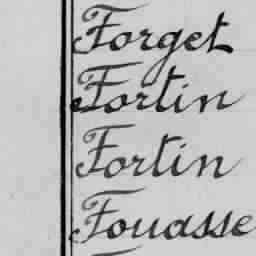 Forget
Fortin
Fortin
Fouasse